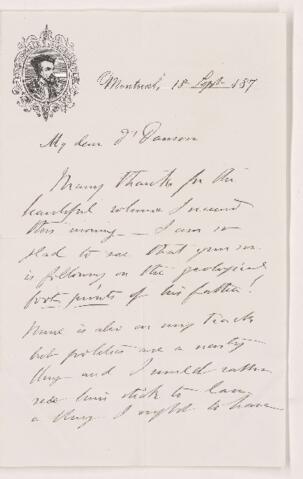 Montreal, 18 Sept. 187
My dear Dr Dawson
Many thanks for the
beautiful volume I received
this evening — I am so
glad to see that your son
is following on the geological
foot prints of his father!
Mine is also on my track
but politics are a nasty
thing and I would rather
see him stick to law,
a thing I ought to have